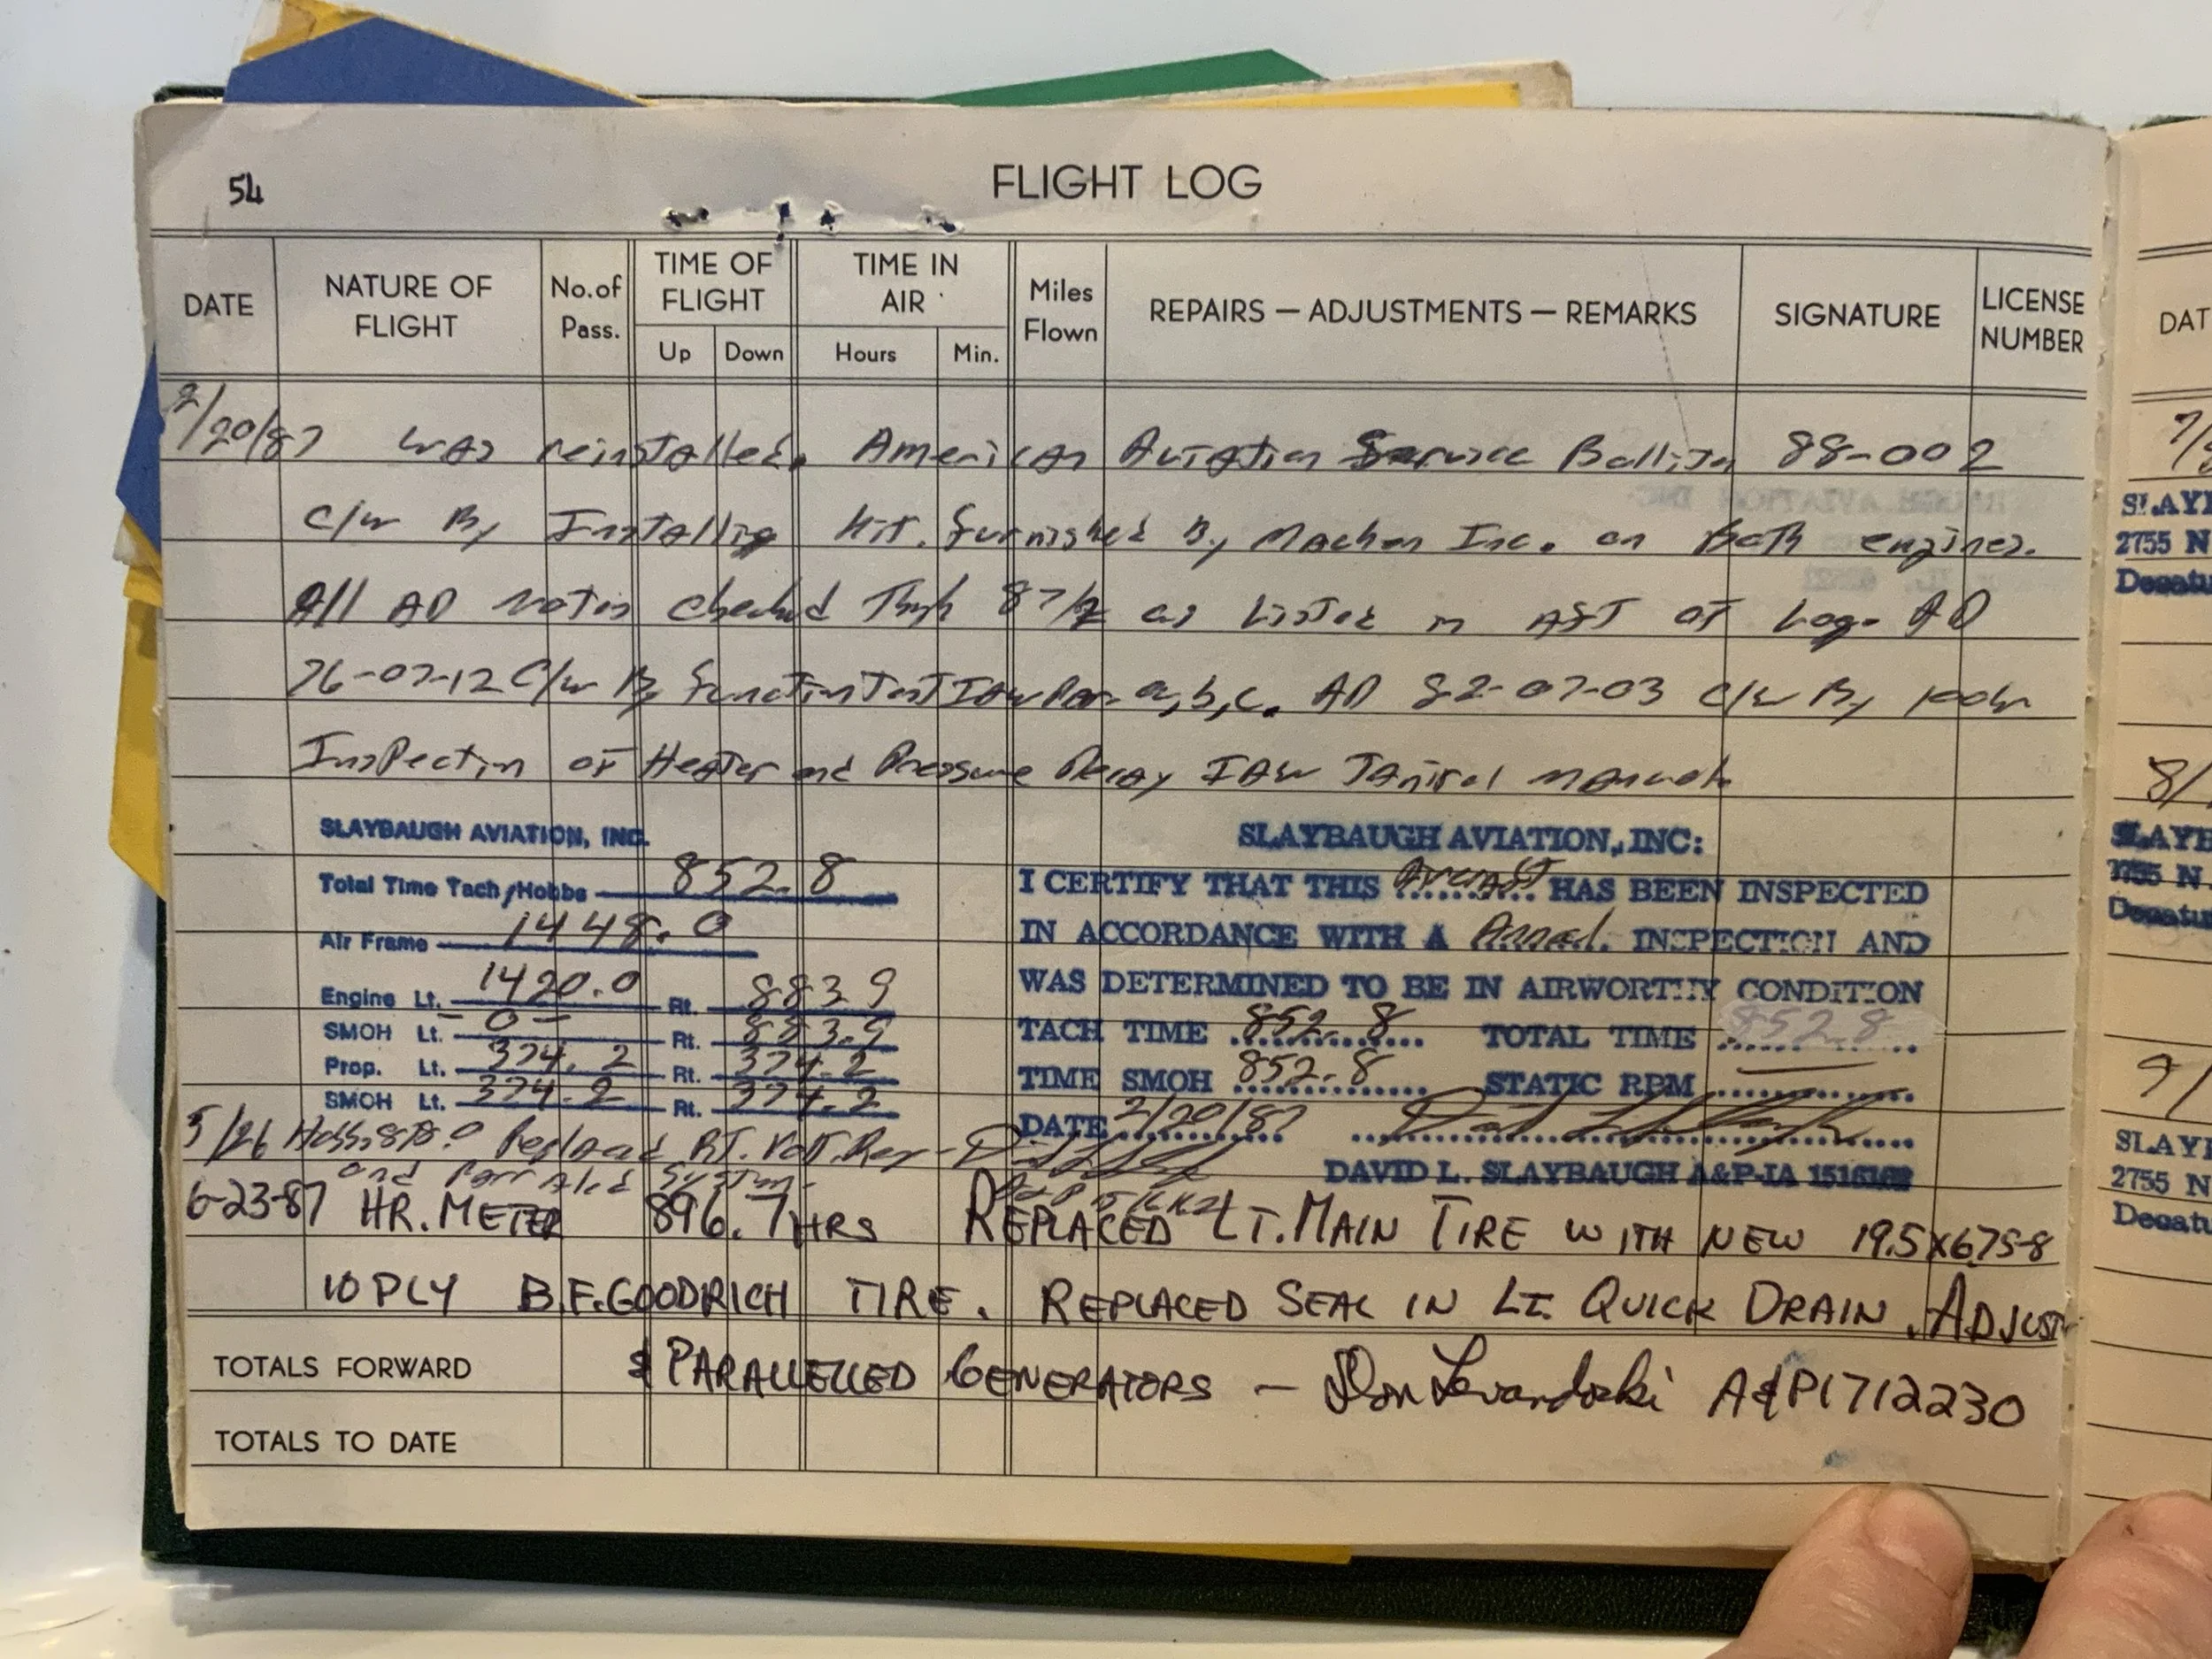 54
FLIGHT LOG
DATE NATURE OF FLIGHT No. of Pass. TIME OF FLIGHT Up Down TIME IN AIR Hours Min. Miles Flown REPAIRS — ADJUSTMENTS — REMARKS SIGNATURE LICENSE NUMBER
2/20/87 was reinstalled. American Aviation Service 88-002
C/w By Installing Kit. furnished By Machen Inc. on Both engines.
All AD notes checked Thru 87/2 as Listed in of Log. AD
76-07-12 C/w By Function Test IAW Par. a,b,c. AD 82-07-03 C/w By 100hr
Inspection of Heater and Pressure Decay IAW Janitrol manual.
SLAYBAUGH AVIATION, INC.
Total Time Tach/Hobbs 852.8
Air Frame 1448.0
Engine Lt. 1420.0 Rt. 883.9
SMOH Lt. -0- Rt. 883.9
Prop. Lt. 374.2 Rt. 374.2
SMOH Lt. 374.2 Rt. 374.2
SLAYBAUGH AVIATION, INC:
I CERTIFY THAT THIS Aircraft HAS BEEN INSPECTED
IN ACCORDANCE WITH A Annual. INSPECTION AND
WAS DETERMINED TO BE IN AIRWORTHY CONDITION
TACH TIME 852.8 TOTAL TIME 852.8
TIME SMOH 852.8 STATIC RPM
DATE 2/20/87
DAVID L. SLAYBAUGH A&P-IA
5/26 Replaced RT. Volt. Reg -
and System.
6-23-87 HR. METER 896.7 HRS REPLACED LT. MAIN TIRE WITH NEW 19.5X675-8
10 PLY B.F. GOODRICH TIRE. REPLACED SEAL IN LT. QUICK DRAIN. ADJUST
& PARALLELLED GENERATORS — Don Levandoski A&P1712230
TOTALS FORWARD
TOTALS TO DATE
DAT
7/
SLAY
2755 N
Decatu
8/
SLAYB
2755 N
Decatu
9/
SLAY
2755 N
Decatu